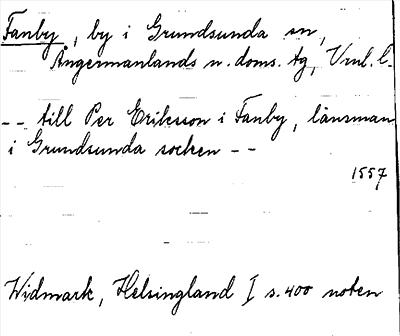 Fanby, by i Grundsunda sn,
Ångermanlands n. doms. tg, Vnl. l.
-- till Per Eriksson i Fanby, länsman
i Grundsunda socken --
1557
Widmark, Helsingland I s. 400 noten